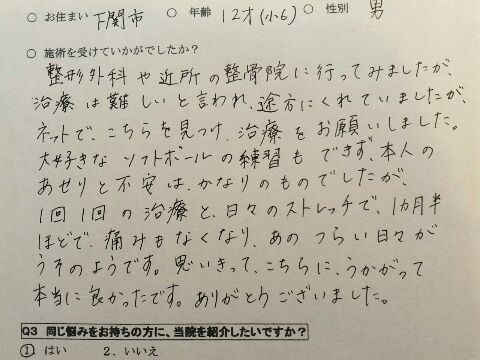 ○ お住まい 下関市 ○ 年齢 12才(小6) ○ 性別 男
○ 施術を受けていかがでしたか?
整形外科や近所の整骨院に行ってみましたが、
治療は難しいと言われ、途方にくれていましたが、
ネットで、こちらを見つけ、治療をお願いしました。
大好きなソフトボールの練習もできず、本人の
あせりと不安は、かなりのものでしたが、
1回1回の治療と、日々のストレッチで、1カ月半
ほどで、痛みもなくなり、あのつらい日々が
うそのようです。思いきって、こちらに、うかがって
本当に良かったです。ありがとうございました。
Q3 同じ悩みをお持ちの方に、当院を紹介したいですか?
① はい 2. いいえ